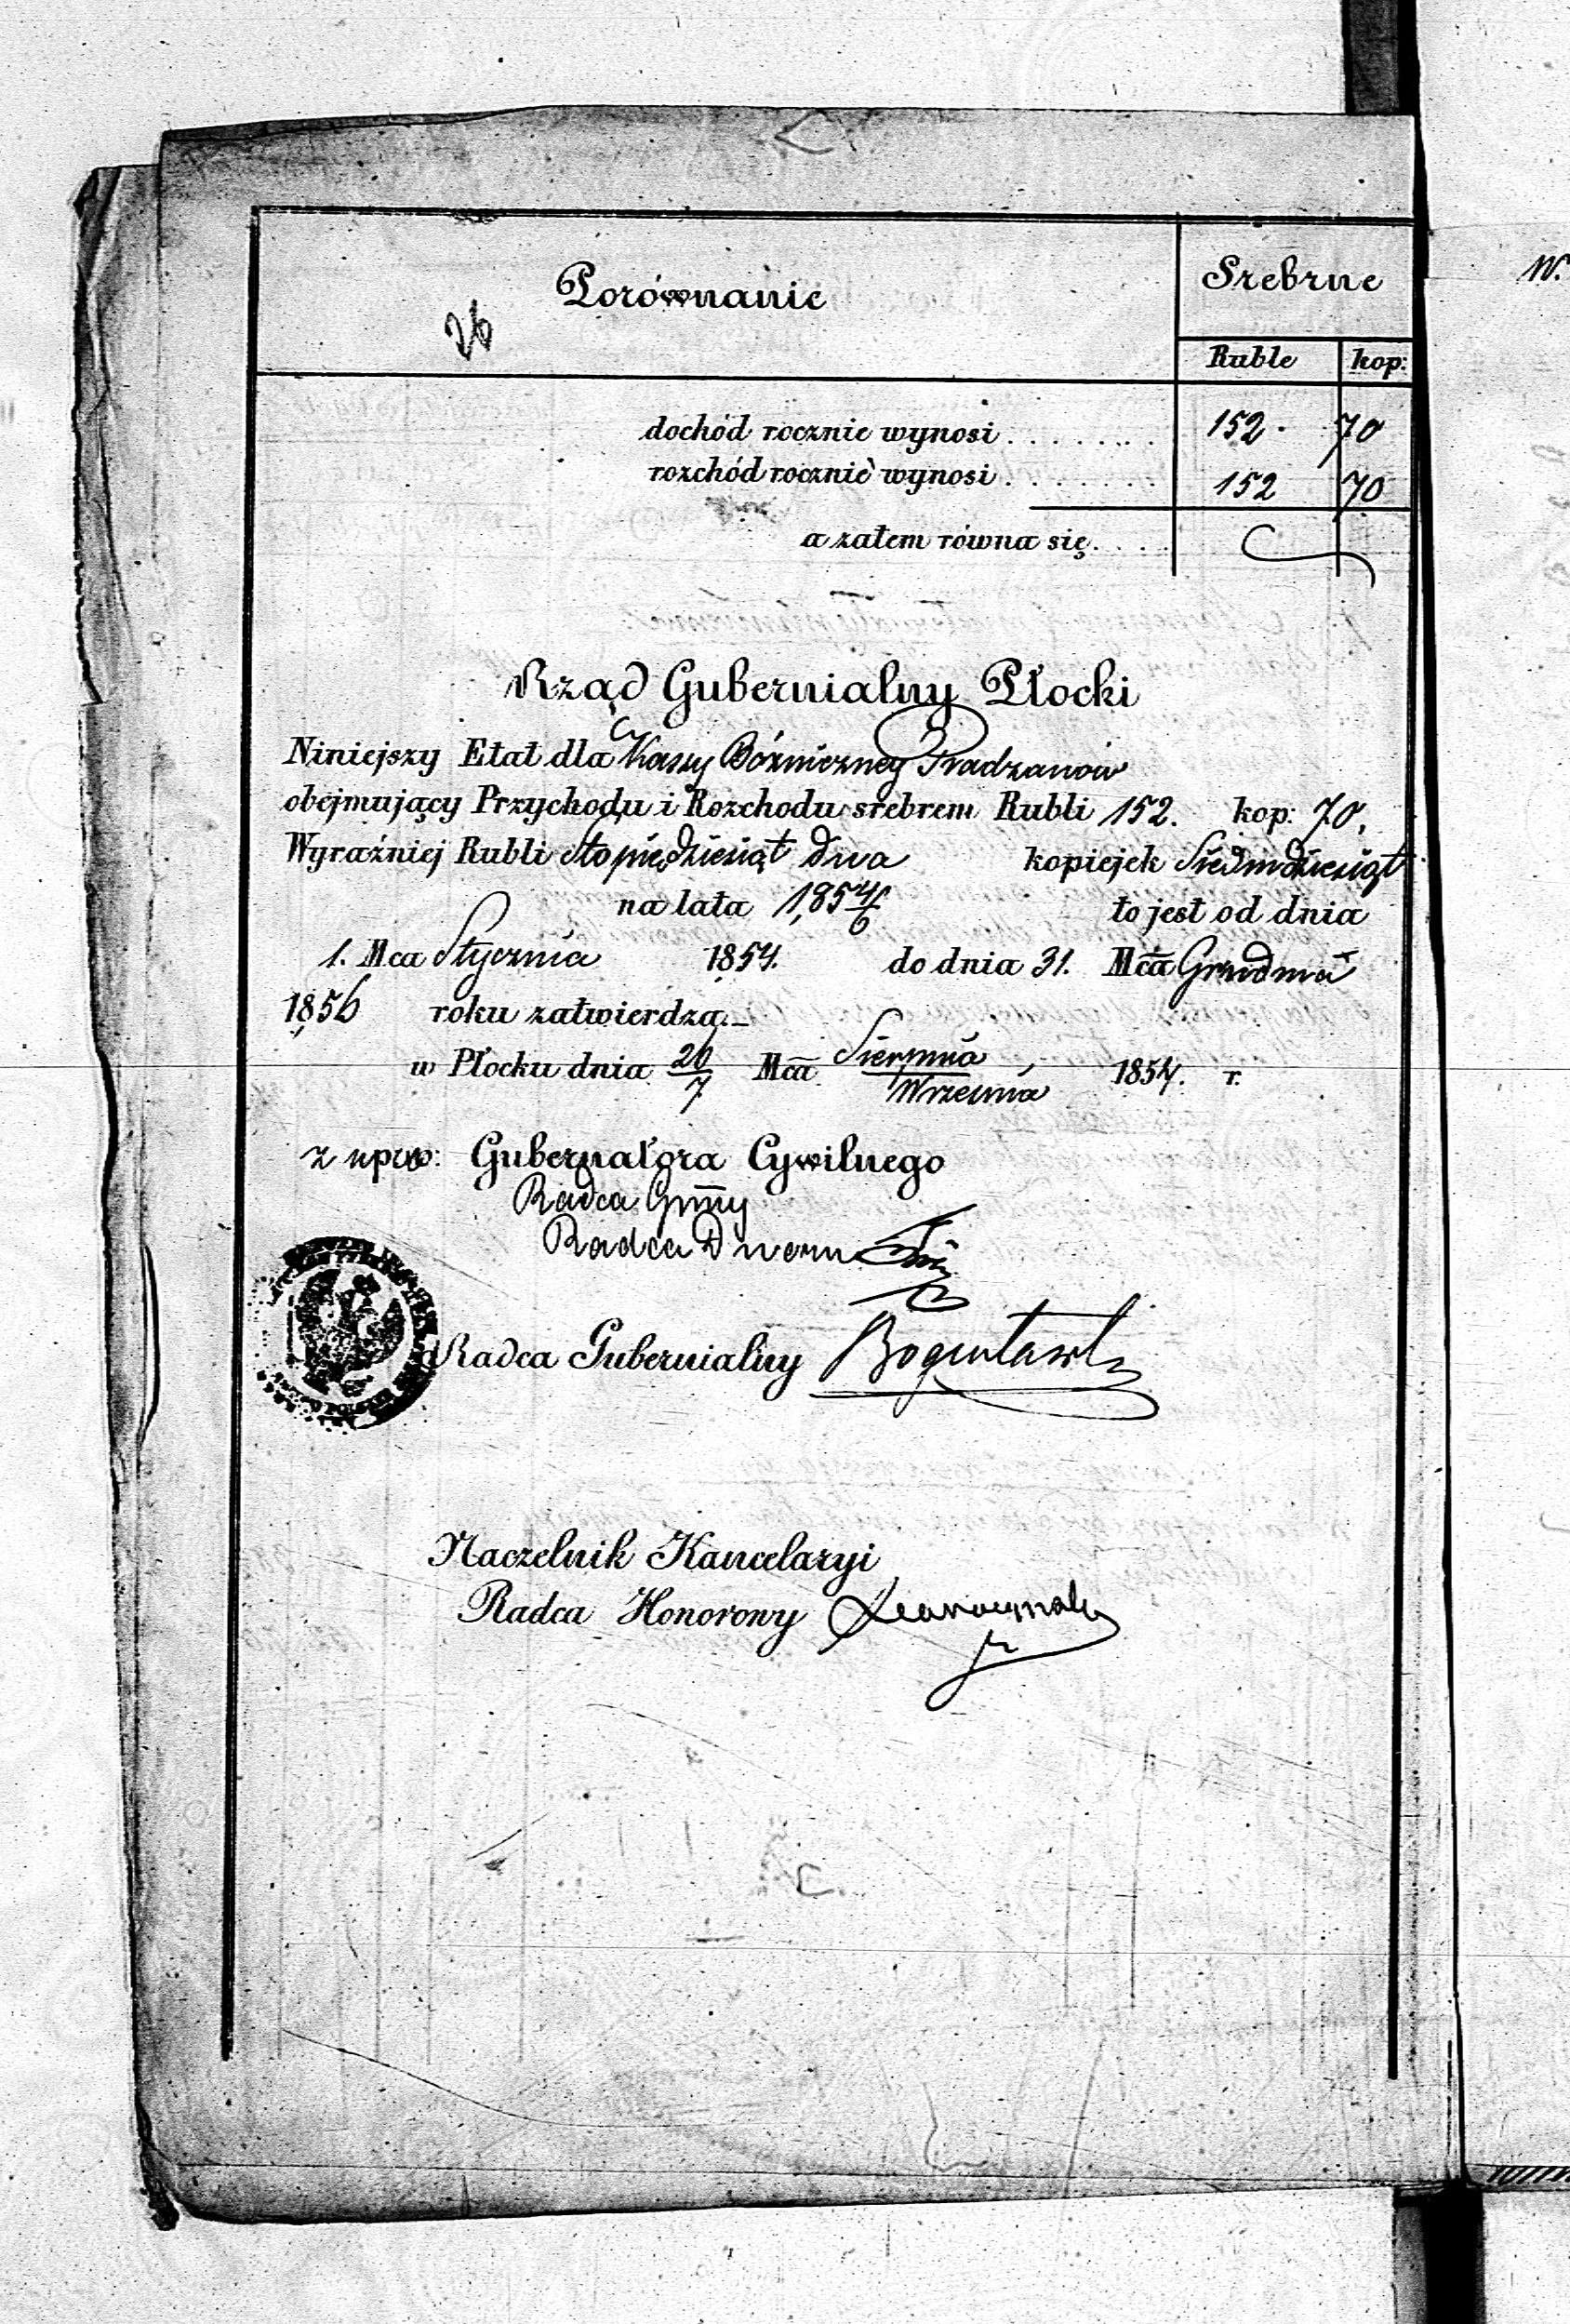 Porównanie
Srebrne
26
Ruble kop:
dochód rocznie wynosi . . . . . . . 152 70
rozchód rocznie wynosi . . . . . . . 152 70
a zatem równa się. . . .
Rząd Gubernialny Płocki
Niniejszy Etat dla Kassy Bóżniczney Radzanów
obejmujący Przychodu i Rozchodu srebrem Rubli 152. kop: 70,
Wyraźniej Rubli Sto pięćdziesiąt dwa kopiejek Siedmdziesiąt
na lata 1854/6 to jest od dnia
1. Mca Stycznia 1854. do dnia 31. Mca Grudnia
1856 roku zatwierdza.
w Płocku dnia 26/7 Mca Sierpnia/Września 1854. r.
z upow: Gubernatora Cywilnego
Radca Gmy
Radca Dworu
Radca Gubernialny
Naczelnik Kancelaryi
Radca Honorowy
W.